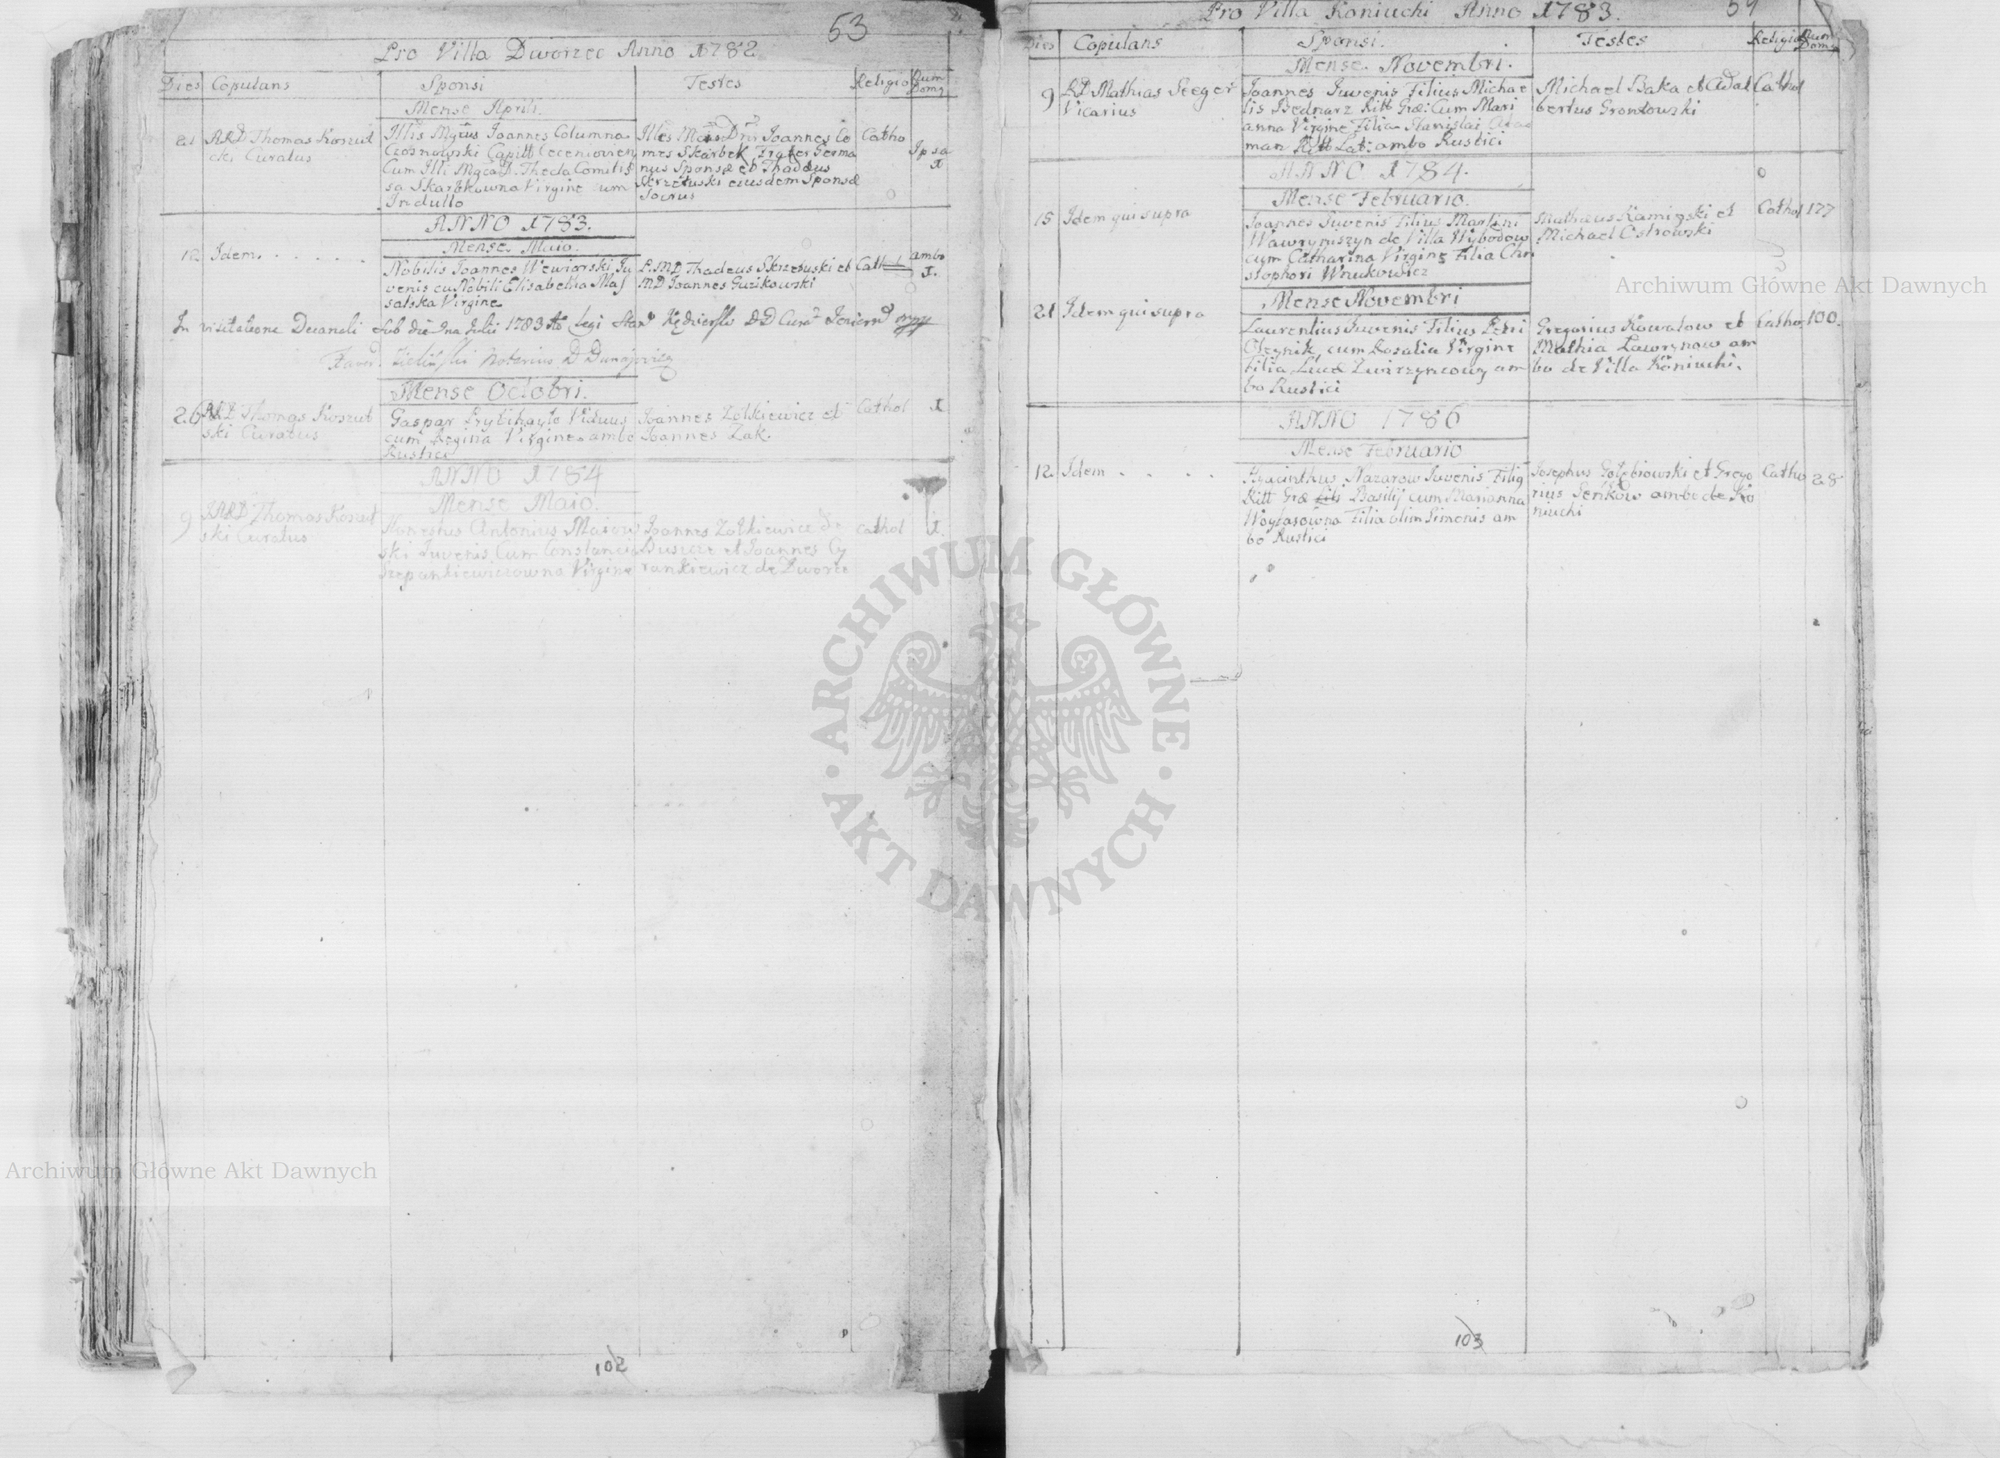 53
Pro Villa Dworzec Anno 1782
Dies Copulans Sponsi Testes Religio Num Domq
Mense Aprili
21 ARD Thomas Koszut
ski Curatus
Illis Mgcus Joannes Columna
Czosnowski Capitt
Cum Illi Mgca D. Thecla Comitis
sa Skarbkowna Virgine cum
Indulto
Illes Joannes Co
mes Skarbek Frater Germa
nus Sponsæ et Thaddeus
Skrzetuski eiusdem Sponsæ
Socrus
Catho
Ipsa
I
ANNO 1783.
Mense Maio.
12 Idem . . . . . .
Nobilis Joannes Wewiorski Ju
venis cu Nobili Elisabetha Maj
salska Virgine
Thadeus Skrzetuski et
MD Joannes Guzikowski
Cath
ambo
I.
In visitatione Decanali sub die Julii 1783
Notarius D Dunajovien
Mense Octobri.
26 ARD Thomas Koszut
ski Curatus
Gaspar Przybihayło Viduus
cum Regina Virgine ambo
Rustici
Joannes Zołkiewicz et
Joannes Zak.
Cathol
I
ANNO 1784
Mense Maio.
9 ARD Thomas Koszut
ski Curatus
Honestus Antonius Maiow
ski Juvenis Cum Constancia
Szepankiewiczowna Virgine
Joannes Zołkiewicz de
Buszcze et Joannes Cy
rankiewicz de Dworze
Cathol
I.
102
Pro Villa Koniuchi Anno 1783.
54
Dies Copulans Sponsi. Testes Religio Num Domq
Mense Novembri.
9 RD Mathias Seeger
Vicarius
Joannes Juvenis Filius Michae
lis Bednarz Ritt Græ: Cum Mari
anna Virgine Filia Stanislai
man Ritt Lat: ambo Rustici
Michael Baka et Adal
bertus Grontowski
Cathol
ANNO 1784.
Mense Februario.
15 Idem qui supra
Joannes Juvenis Filius Martini
Wawrymszyn de Villa Wybodow
cum Catharina Virgine Filia Chri
stophori Wnukowicz
Mathæus Kaminski et
Michael Ostrowski
Cathol 127
Mense Novembri
21 Idem qui supra
Laurentius Juvenis Filius Petri
Oleynik cum Rosalia Virgine
Filia Lucæ Zwirzyncowy am
bo Rustici
Gregorius Kowalow et
Mathia Lawrynow am
bo de Villa Koniuchi.
Catho 100.
ANNO 1786
Mense Februario
12. Idem . . . .
Hyacinthus Nazarow Juvenis Filiq
Ritt Græ Basilij cum Marianna
Woytasowna Filia olim Simonis am
bo Rustici
Josephus Gołębiowski et Grego
rius Senkow ambo de Ko
niuchi
Catho 28
103
ARCHIWUM GŁÓWNE
AKT DAWNYCH
Archiwum Główne Akt Dawnych
Archiwum Główne Akt Dawnych